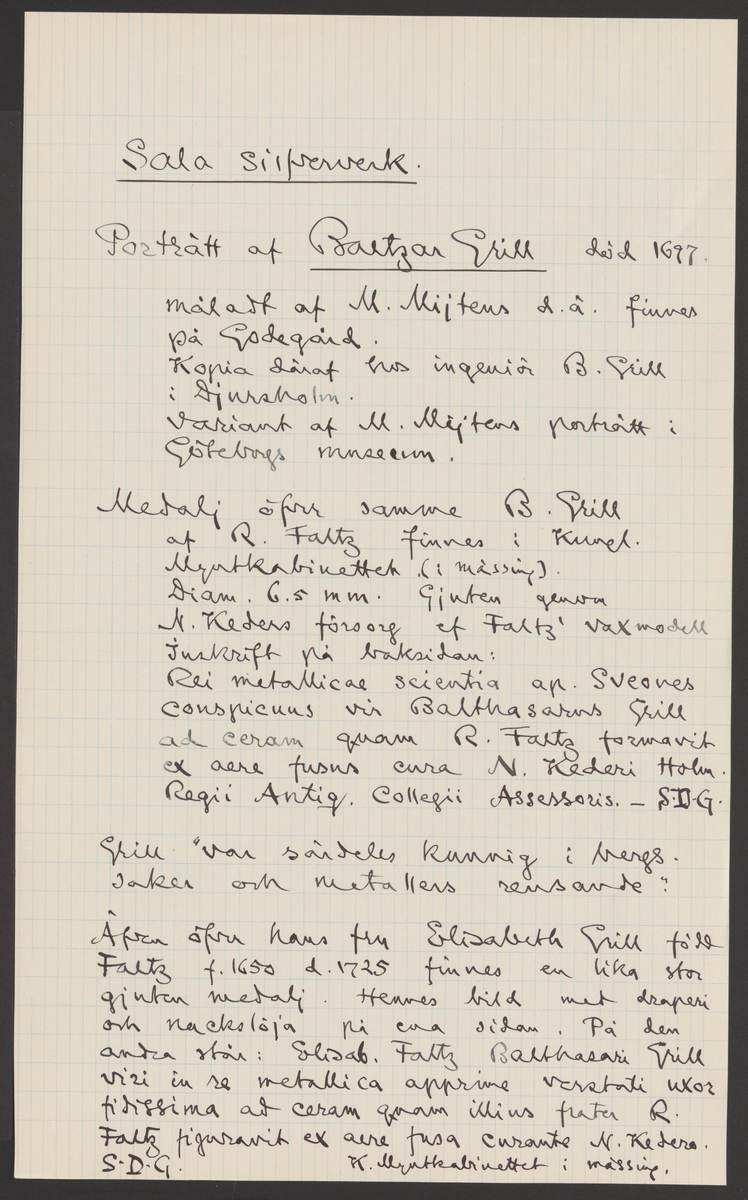 Sala Silfververk.
Porträtt af Baltzar Grill död 1697.
måladt af M. Mijtens d.ä. finnes
på Godegård.
Kopia däraf hos ingeniör B. Grill
i Djursholm.
Variant af M. Mijtens porträtt i
Göteborgs museum.
Medalj öfver samme B. Grill
af R. Faltz finnes i Kungl.
Myntkabinettet (i mässing).
Diam. 6.5 mm. Gjuten genom
N. Keders försorg ef Faltz' vaxmodell
Inskrift på baksidan:
Rei metallicae scientia ap. Sveones
conspicuus vir Balthasarus Grill
ad ceram quam R. Faltz formavit
ex aere fusus cura N. Kederi Holm.
Regii Antiq. Collegii Assessoris. – S.D.G.
Grill "var särdeles kunnig i bergs-
saker och metallers rensande".
Äfven öfver hans fru Elisabeth Grill född
Faltz f. 1650 d. 1725 finnes en lika stor
gjuten medalj. Hennes bild med draperi
och nackslöja på ena sidan. På den
andra står: Elisab. Faltz Balthasari Grill
viri in re metallica apprime versati uxor
fidissima ad ceram quam illius frater R.
Faltz figuravit ex aere fusa curante N. Kedero.
S.D.G. K. Myntkabinettet i mässing.